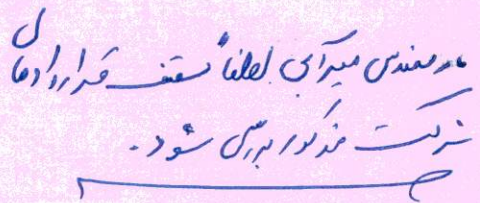 مهندس میرآبی لطفاً سقف قراردادهای
شرکت مذکور بررسی شود.